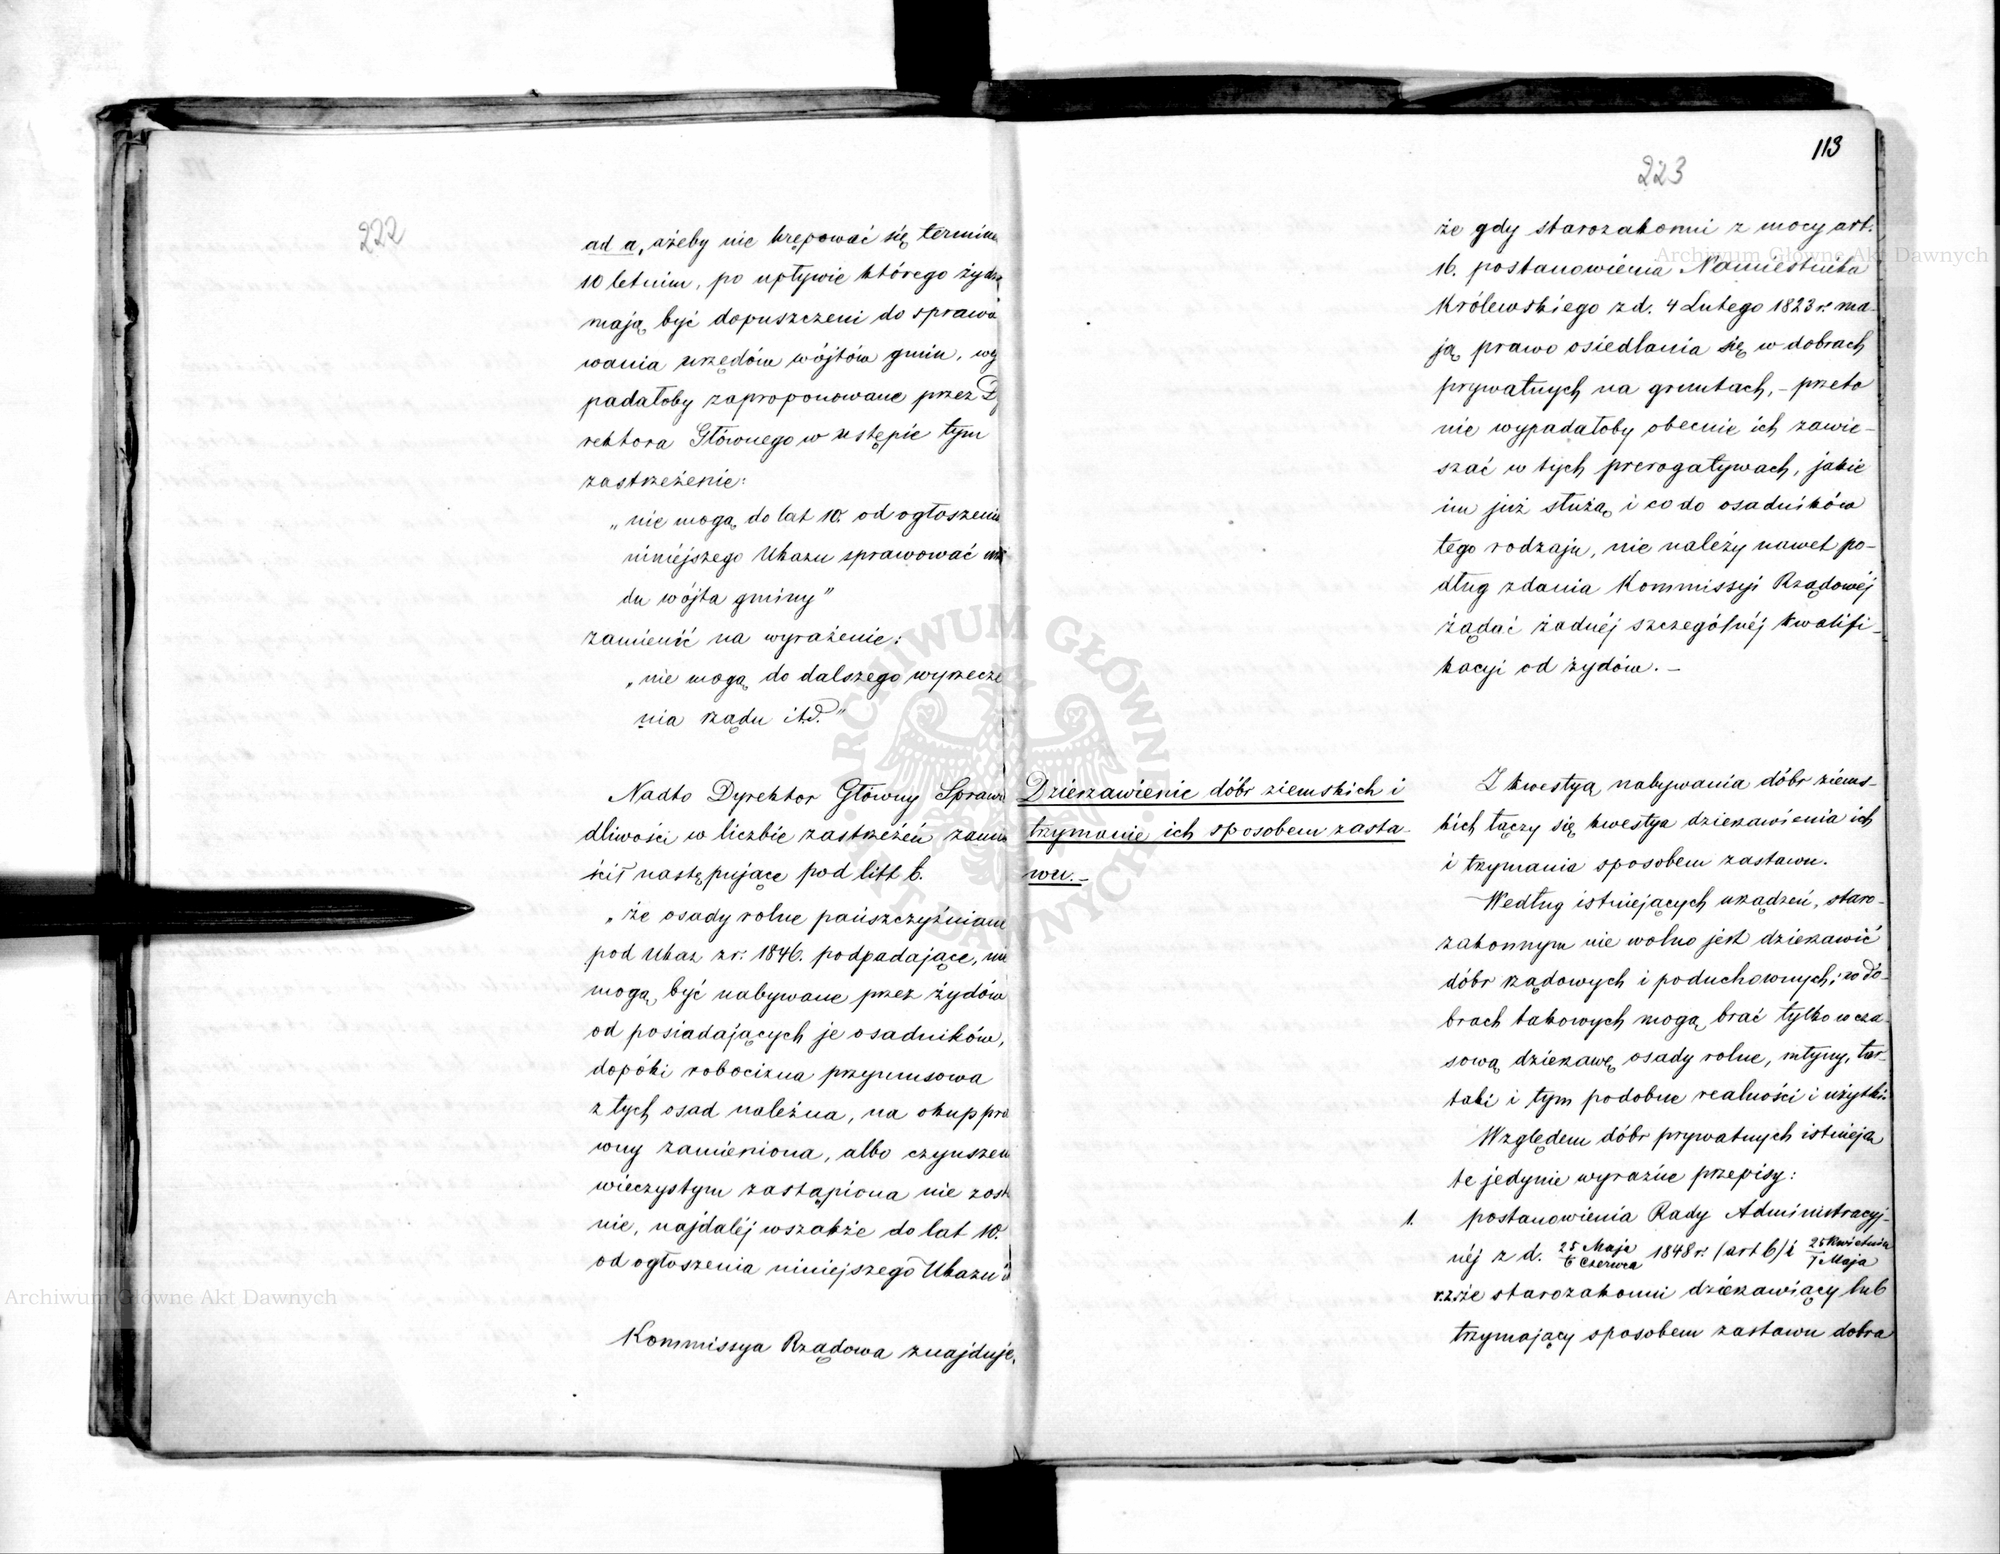 222
ad a, ażeby nie krępować się termine
10 letnim, po upływie którego żydzi
mają być dopuszczeni do sprawo
wania urzędów wójtów gmin, wy
padałoby zaproponowane przez Dy
rektora Głównego w ustępie tym
zastrzeżenie:
„nie mogą do lat 10. od ogłoszenia
niniejszego Ukazu sprawować urzę
du wójta gminy”
zamienić na wyrażenie:
„nie mogą do dalszego wyrzecze
nia rządu itd.”
Nadto Dyrektor Główny Sprawie
dliwości w liczbie zastrzeżeń zamie
ścił następujące pod litt b.
„że osady rolne pańszczyźniane
pod Ukaz z r: 1846. podpadające, nie
mogą być nabywane przez żydów
od posiadających je osadników,
dopóki robocizna przymusowa
z tych osad należna, na okup pra
wny zamieniona, albo czynszem
wieczystym zastąpiona nie zosta
nie, najdaléj wszakże do lat 10.
od ogłoszenia niniejszego Ukazu
Kommissya Rządowa znajduje,
113
223
że gdy starozakonni z mocy art.
16. postanowienia Namiestnika
Królewskiego z d. 4 Lutego 1823 r. ma-
ją prawo osiedlania się w dobrach
prywatnych na gruntach, – przeto
nie wypadałoby obecnie ich zawie-
szać w tych prerogatywach, jakie
im już służą i co do osadników
tego rodzaju, nie należy nawet po-
dług zdania Kommissyi Rządowéj
żądać żadnéj szczególnéj kwalifi-
kacyi od żydów. –
Dzierzawienie dóbr ziemskich i
trzymanie ich sposobem zasta-
wu. –
Z kwestyą nabywania dóbr ziems-
kich łączy się kwestya dzierzawienia ich
i trzymania sposobem zastawu.
Według istniejących urządzeń, staro-
zakonnym nie wolno jest dzierzawić
dóbr rządowych i poduchownych; w do-
brach takowych mogą brać tylko w cza-
sową dzierzawę osady rolne, młyny, tar-
taki i tym podobne realności i użytki.
Względem dóbr prywatnych istnieją
te jedynie wyraźne przepisy:
1. postanowienia Rady Administracyj-
néj z d. 25 Maja/6 Czerwca 1848 r. (art 6) i 25 Kwietnia/7 Maja
że starozakonni dzierzawiący lub
trzymający sposobem zastawu dobra
Archiwum Główne Akt Dawnych
Archiwum Główne Akt Dawnych
ARCHIWUM GŁÓWNE AKT DAWNYCH